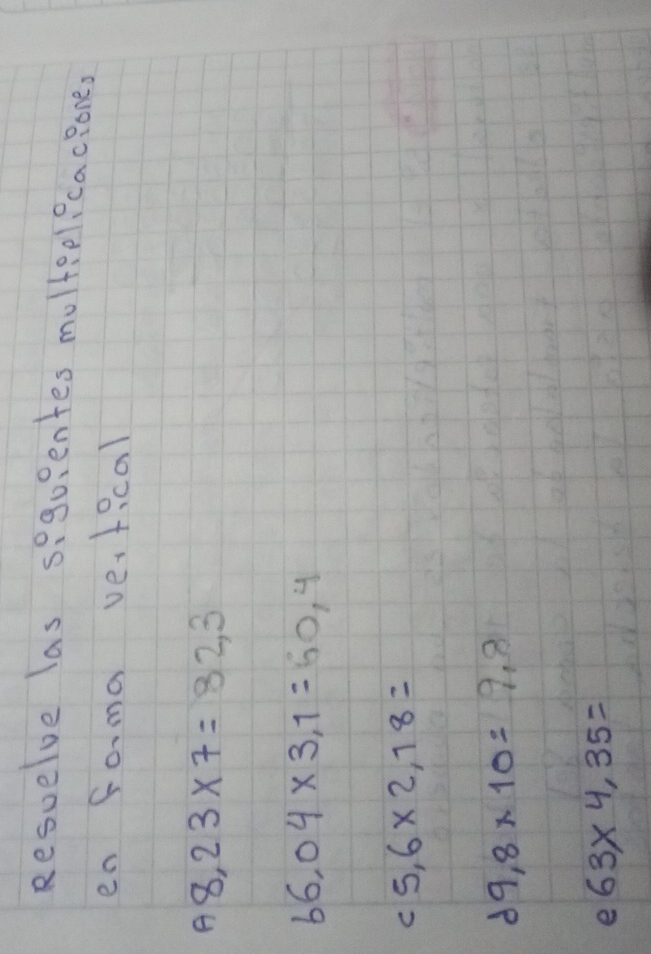 Resuelve las siguientes multiplicaciones
en forma vertical
A 8,23 x 7 = 82,3
b 6,04 x 3,1 = 60,4
c 5,6 x 2,18 =
d 9,8 x 10 = 9,8
e 63 x 4,35 =